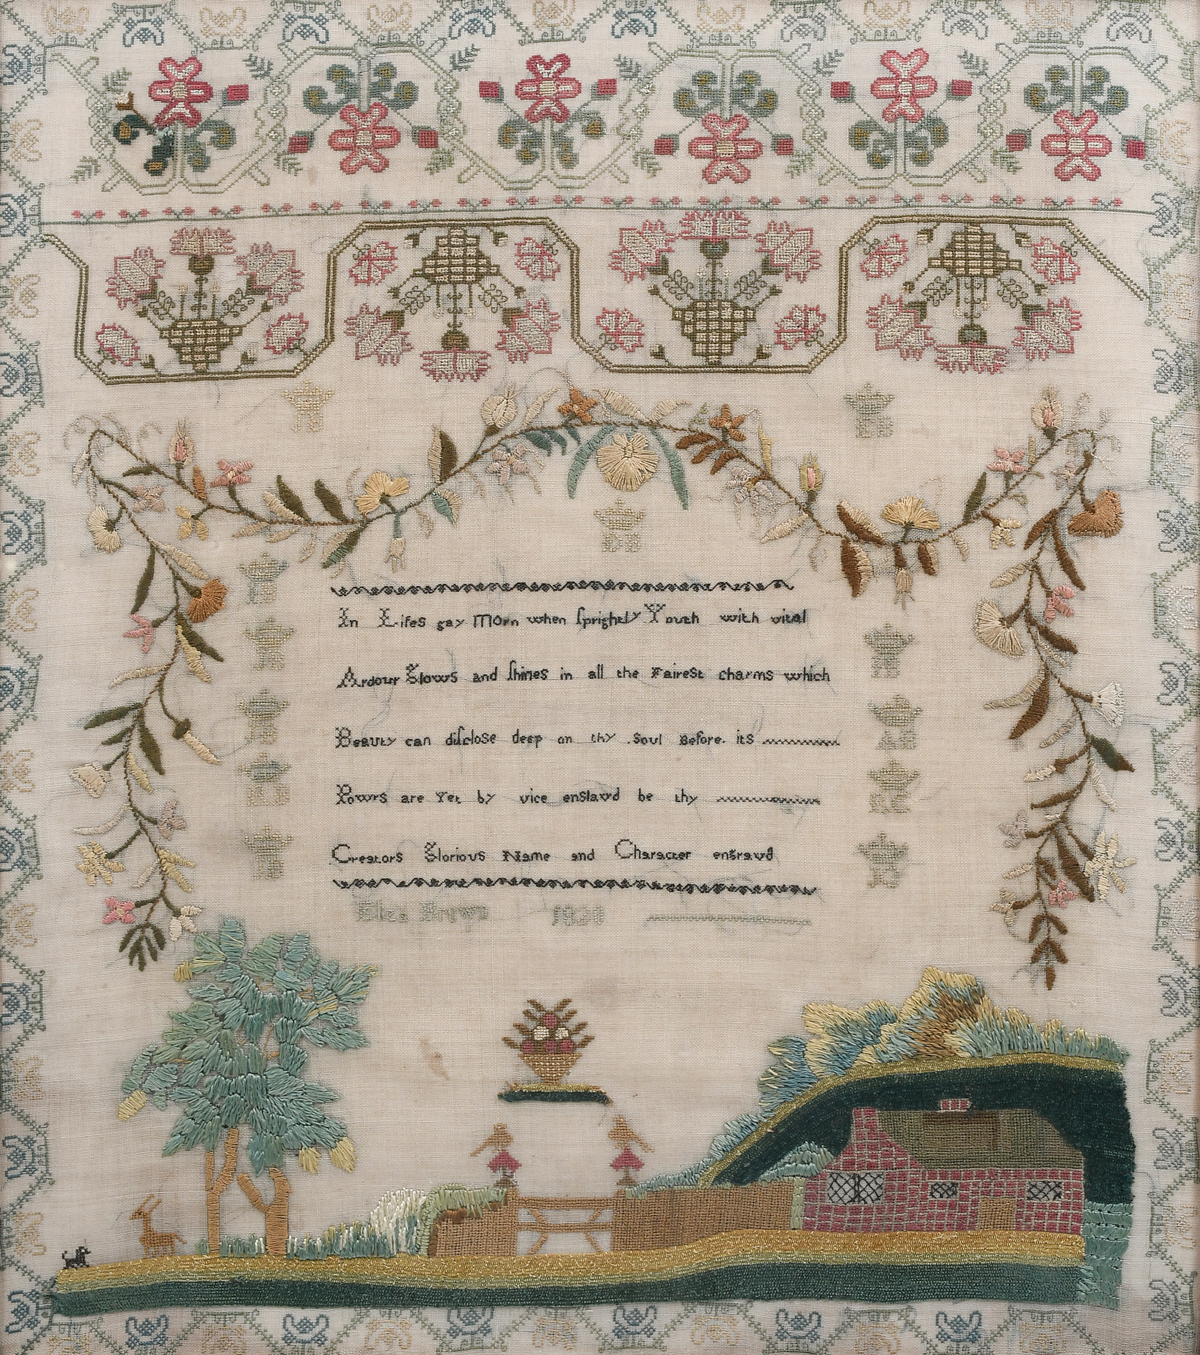 In Lifes gay Morn when ſprightly Youth with vital
Ardour Glows and ſhines in all the Fairest charms which
Beauty can diſcloſe deep on thy Soul Before its
Powrs are Yet by vice enslavd be thy
Creators Glorious Name and Character engravd
Eliza Brown 1820